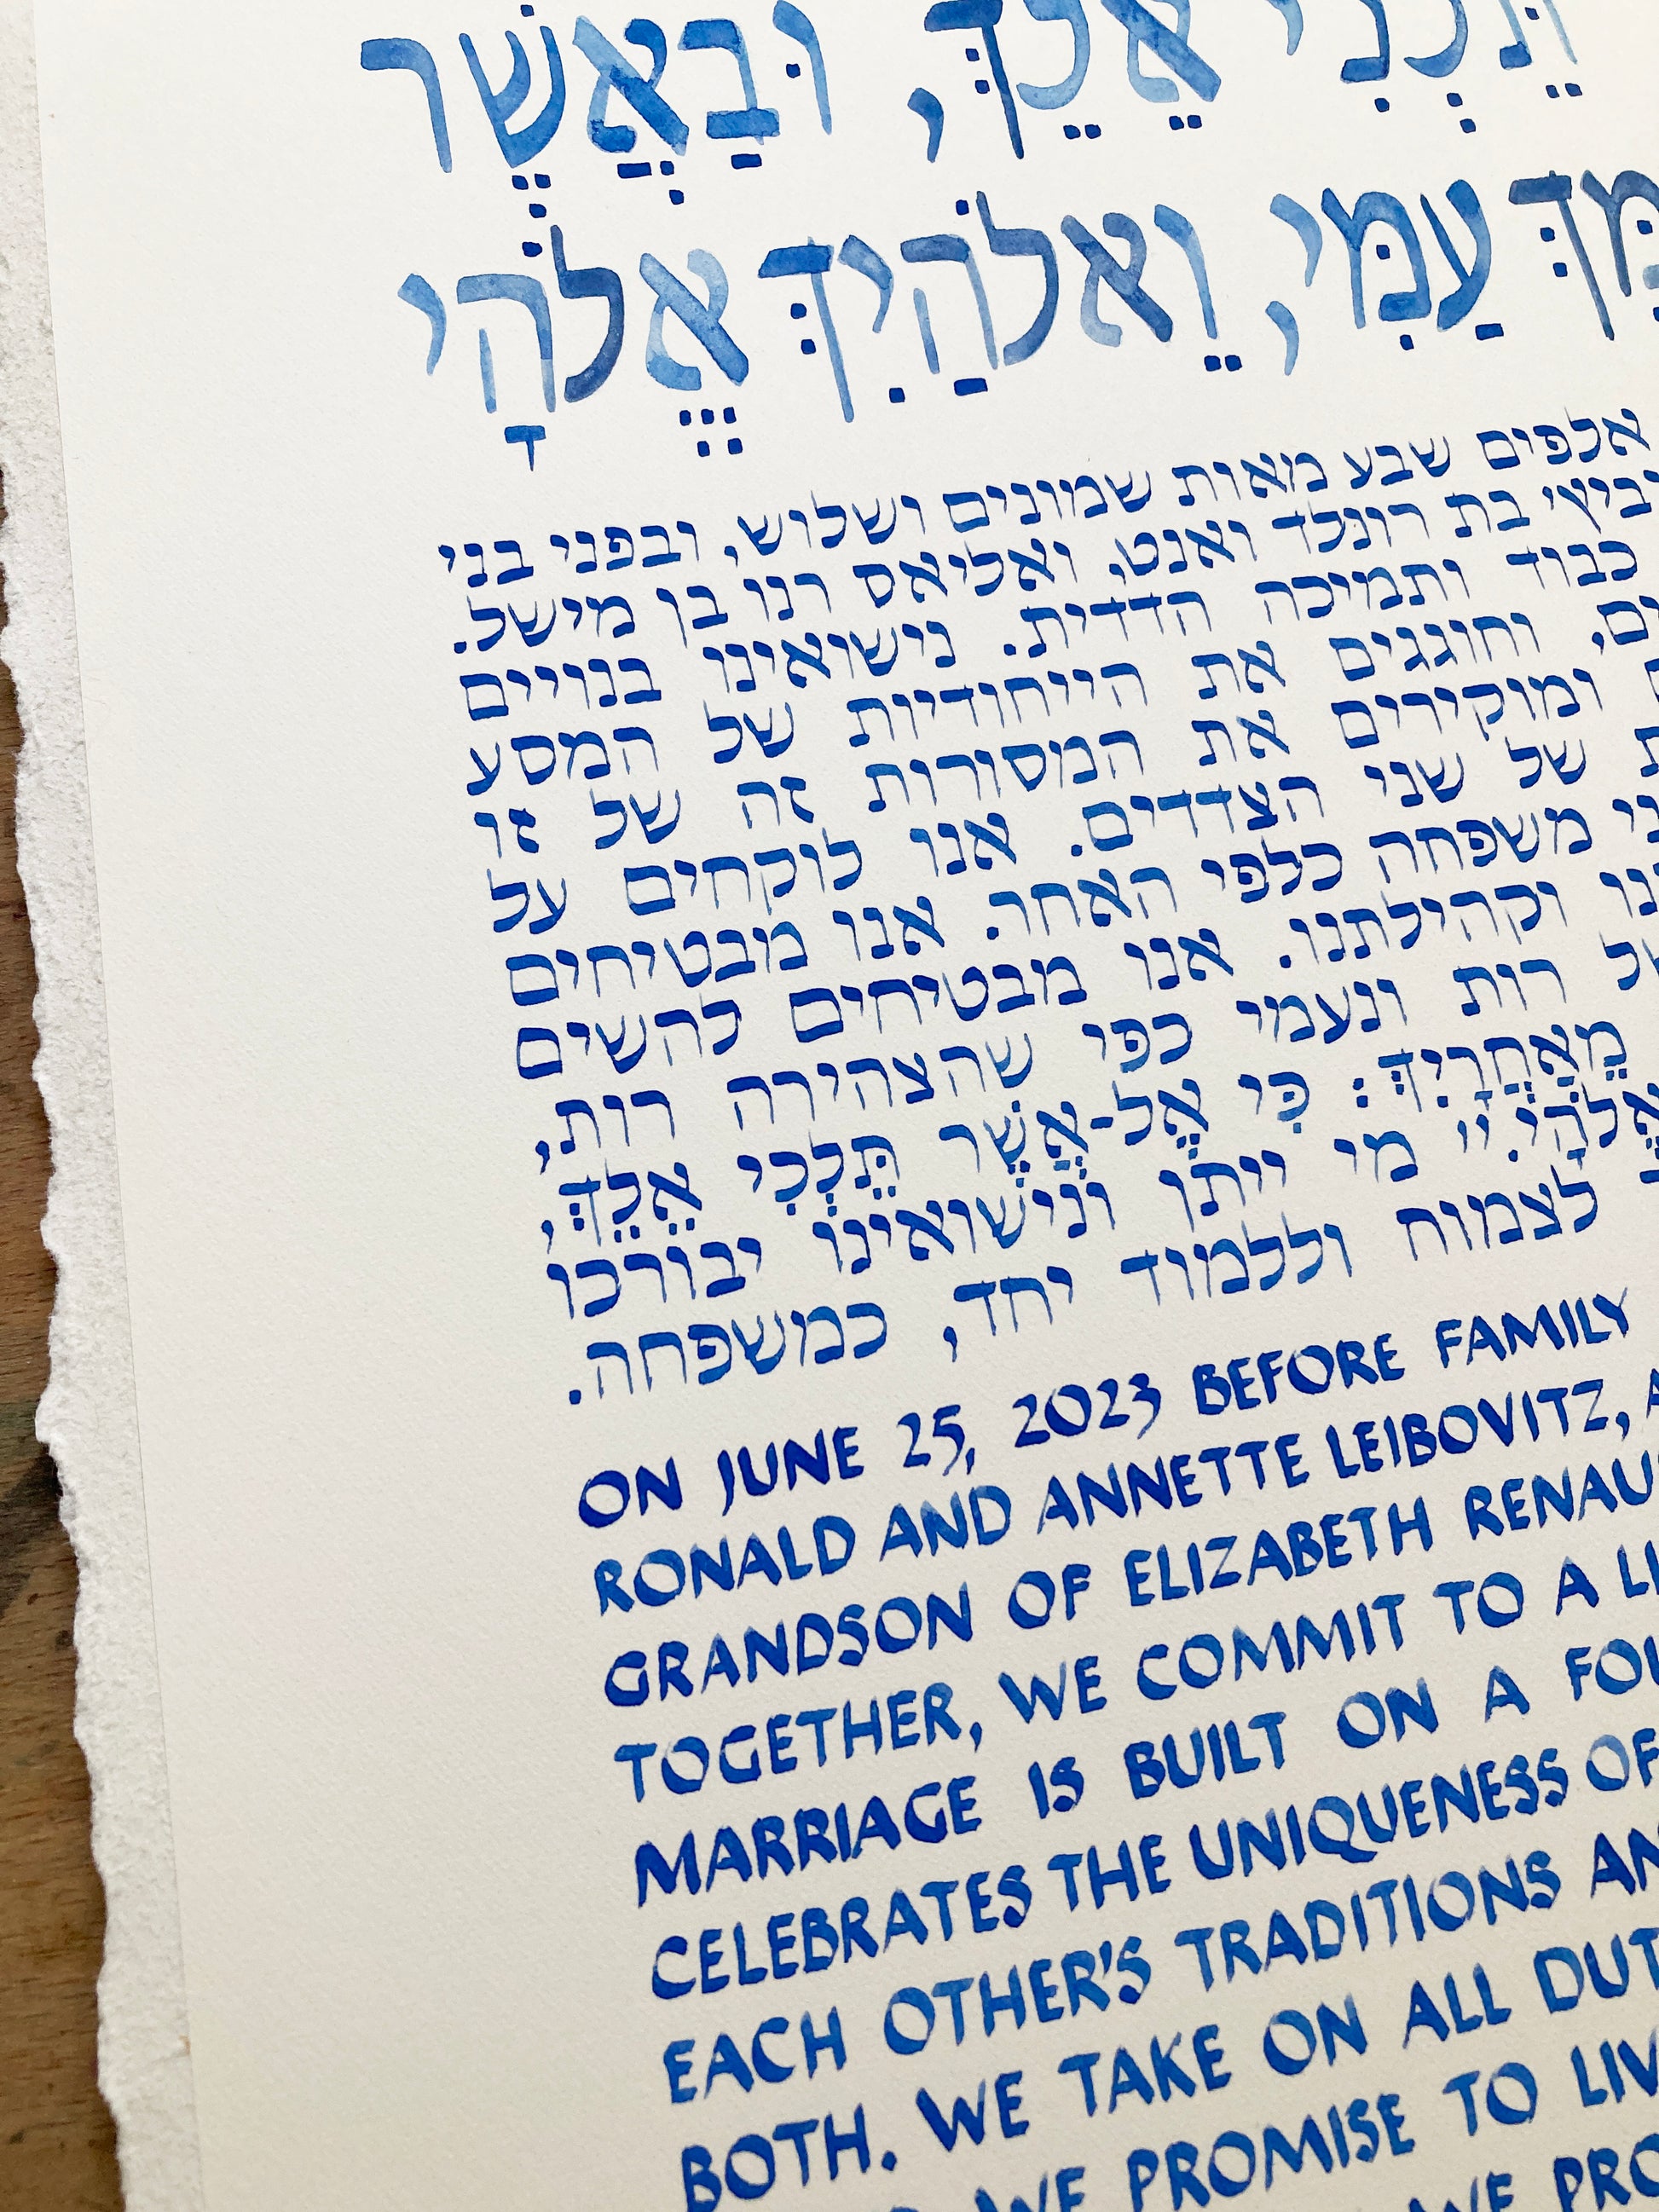 אֵלֵךְ, וּבַאֲשֶׁר
עַמִּי, וֵאלֹהַיִךְ אֱלֹהָי
אלפים שבע מאות שמונים ושלוש, ובפני בני
בת רונלד ואנט, ואליאס רנו בן מישל.
כבוד ותמיכה הדדית. נישואינו בנויים
וחוגגים את הייחודיות של המסע
ומוקירים את המסורות זה של זו
של שני הצדדים. אנו לוקחים על
משפחה כלפי האחר. אנו מבטיחים
וקהילתנו. אנו מבטיחים להשים
רות ונעמי כפי שהצהירה רות,
מֵאַחֲרָיִךְ: כִּי אֶל-אֲשֶׁר תֵּלְכִי אֵלֵךְ,
אֱלֹהָי." מי ייתן ונישואינו יבורכו
לצמוח וללמוד יחד, כמשפחה.
ON JUNE 25, 2023 BEFORE FAMILY
RONALD AND ANNETTE LEIBOVITZ,
GRANDSON OF ELIZABETH
TOGETHER, WE COMMIT TO A
MARRIAGE IS BUILT ON A
CELEBRATES THE UNIQUENESS OF
EACH OTHER'S TRADITIONS
BOTH. WE TAKE ON ALL
WE PROMISE TO
WE